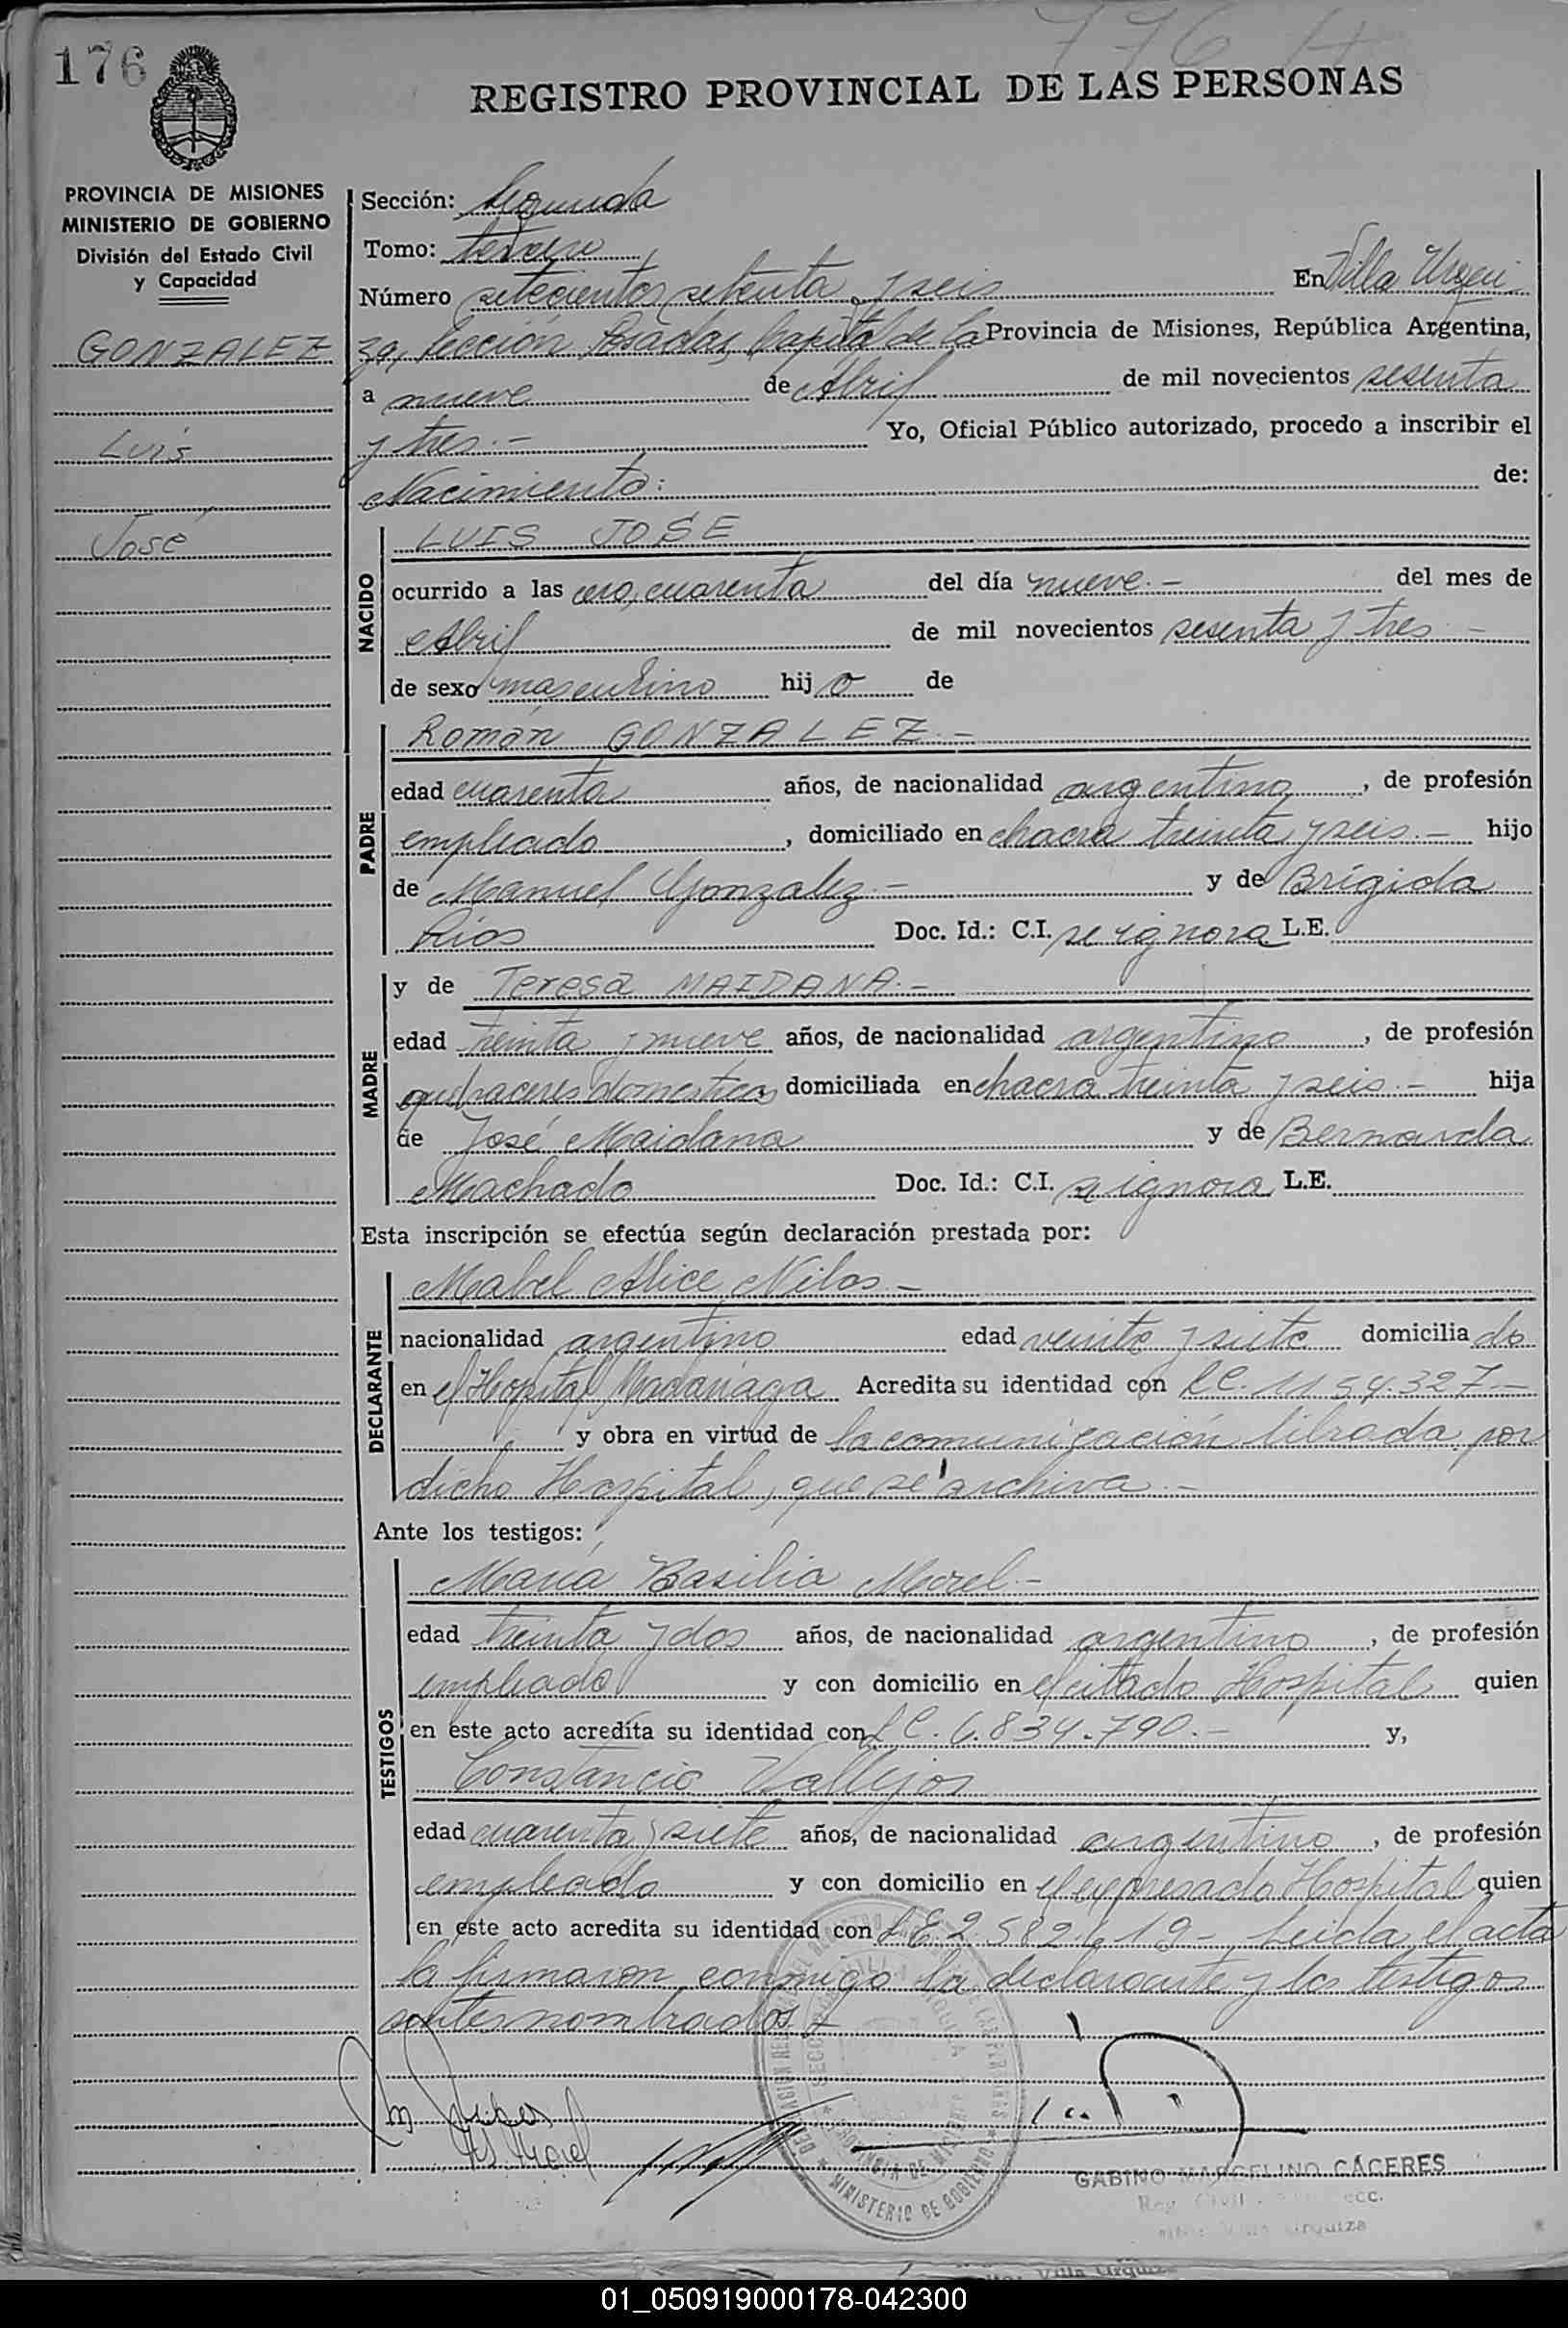 176
776
REGISTRO PROVINCIAL DE LAS PERSONAS
PROVINCIA DE MISIONES
MINISTERIO DE GOBIERNO
División del Estado Civil
y Capacidad
GONZALEZ
Luis
José
Sección: Segunda
Tomo: tercero
Número setecientos setenta y seis En Villa Urqui
za, Sección Posadas, Capital de la Provincia de Misiones, República Argentina,
a nueve de Abril de mil novecientos sesenta
y tres.- Yo, Oficial Público autorizado, procedo a inscribir el
Nacimiento: de:
NACIDO
LUIS JOSÉ
ocurrido a las cero, cuarenta del día nueve.- del mes de
Abril de mil novecientos sesenta y tres -
de sexo masculino hijo de
PADRE
Román GONZALEZ.-
edad cuarenta años, de nacionalidad argentina, de profesión
empleado, domiciliado en chacra treinta y seis.- hijo
de Manuel Gonzalez.- y de Brígida
Ríos Doc. Id.: C.I. se ignora L.E.
MADRE
y de Teresa MAIDANA.-
edad treinta y nueve años, de nacionalidad argentina, de profesión
quehaceres domesticos domiciliada en chacra treinta y seis.- hija
de José Maidana y de Bernarda
Machado Doc. Id.: C.I. se ignora L.E.
Esta inscripción se efectúa según declaración prestada por:
DECLARANTE
Mabel Alice Nilos.-
nacionalidad argentino edad veinte y siete domiciliado
en el Hospital Madariaga Acredita su identidad con LC. 1154.327.-
y obra en virtud de la comunicación librada por
dicho Hospital, que se archiva.-
Ante los testigos:
TESTIGOS
María Basilia Morel.-
edad treinta y dos años, de nacionalidad argentino, de profesión
empleado y con domicilio en el citado Hospital quien
en este acto acredita su identidad con LC. 6.834.790.- y,
Constancio Vallejos
edad cuarenta y siete años, de nacionalidad argentino, de profesión
empleado y con domicilio en el expresado Hospital quien
en este acto acredita su identidad con LE. 2.582.619- Leida el acta
la firmaron conmigo la declarante y los testigos
antes nombrados.-
MINISTERIO DE GOBIERNO
GABINO MARCELINO CÁCERES
01_050919000178-042300